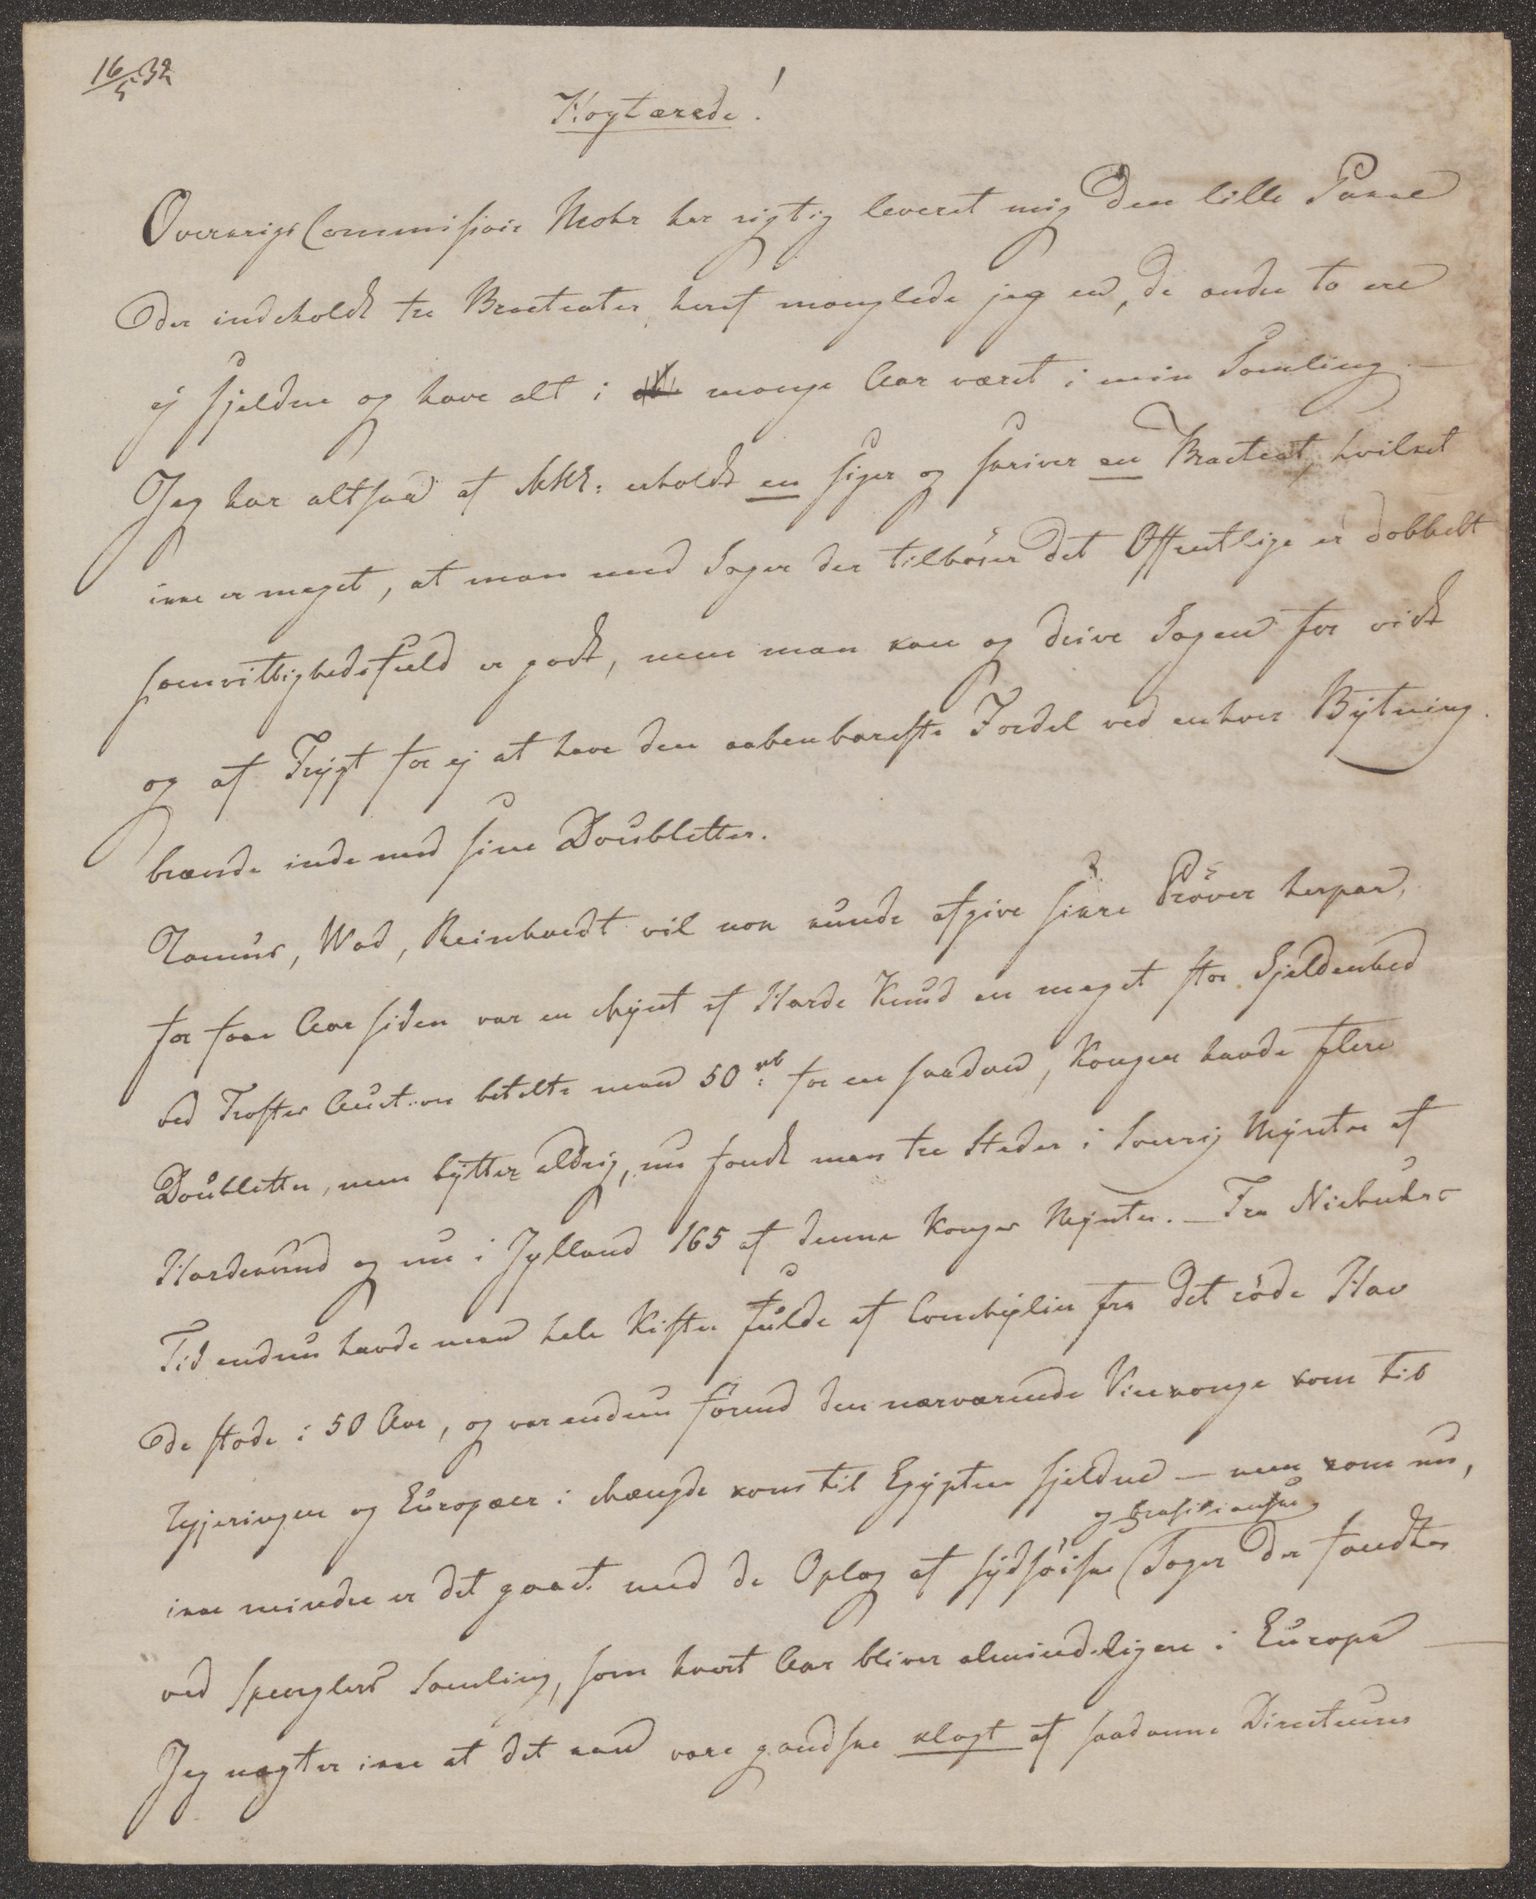 16/5 32
Høgtærede!
Overkrigs Commissair Mohr har rigtig leveret mig Den lille Pakke
der indeholdt tre Bracteater, heraf manglede jeg en, de andre to ere
ej sjeldne og have alt i mange Aar været i min Samling. —
Jeg har altsaa af MK: erholdt en siger og skriver en Bracteat, hvilket
ikke er meget, at man med Sager der tilhører det Offentlige er dobbelt
samvittighedsfuld er godt, men man kan og drive Sagen for vidt
og af Frygt for ej at have den aabenbareste Fordel ved enhver Bytning
brænde inde med sine Doubletter.
Ramus, Wad, Reinhardt vil nok kunde afgive sikre Prøver herpaa,
for faae Aar siden var en Mynt af Harde Knud en meget stor Sjeldenhed
ved Trosters Auction betalte man 50 rb for en saadan, Kongen havde flere
Doubletter, men bytter aldrig, nu fandt man tre Steder i Sverrig Mynter af
Hardeknud og nu i Jylland 165 af denne Konges Mynter. — Fra Niebuhrs
Tid endnu havde man hele Kister fulde af Conchylier fra det røde Hav
de stode i 50 Aar, og var endnu førend den nærværende Vicekonge kom til
Regjeringen og Europæer i Mængde kom til Egypten sjeldne — men kom nu,
og brasilianske
ikke mindre er det gaaet med de Oplag af sydsøiske Sager der fandtes
ved Spenglers Samling, som hvert Aar bliver almindeligere i Europa —
Jeg nægter ikke at det kand være gandske klogt af saadanne Directeurer